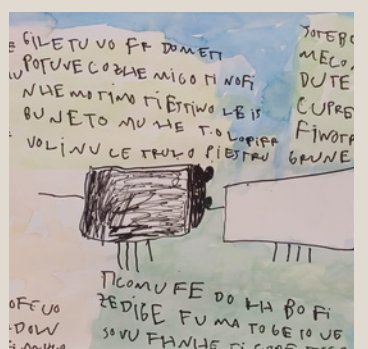 GILETU VO FR DOMETI
POTUVE COZHE MIGO TI NOFI
NHE MOTIMO TIESTINO LE IS
BUNETO MU HE TOLOPIER
VOLINU CE TRULO PIESTRU
JOTEBO
MECO
DUTE
CUPRE
FINOTR
GRUNE
TICOMU FE DO LH BO FI
ZEDIGE FU MA TO GE TO UE
OFEUO
DOLU